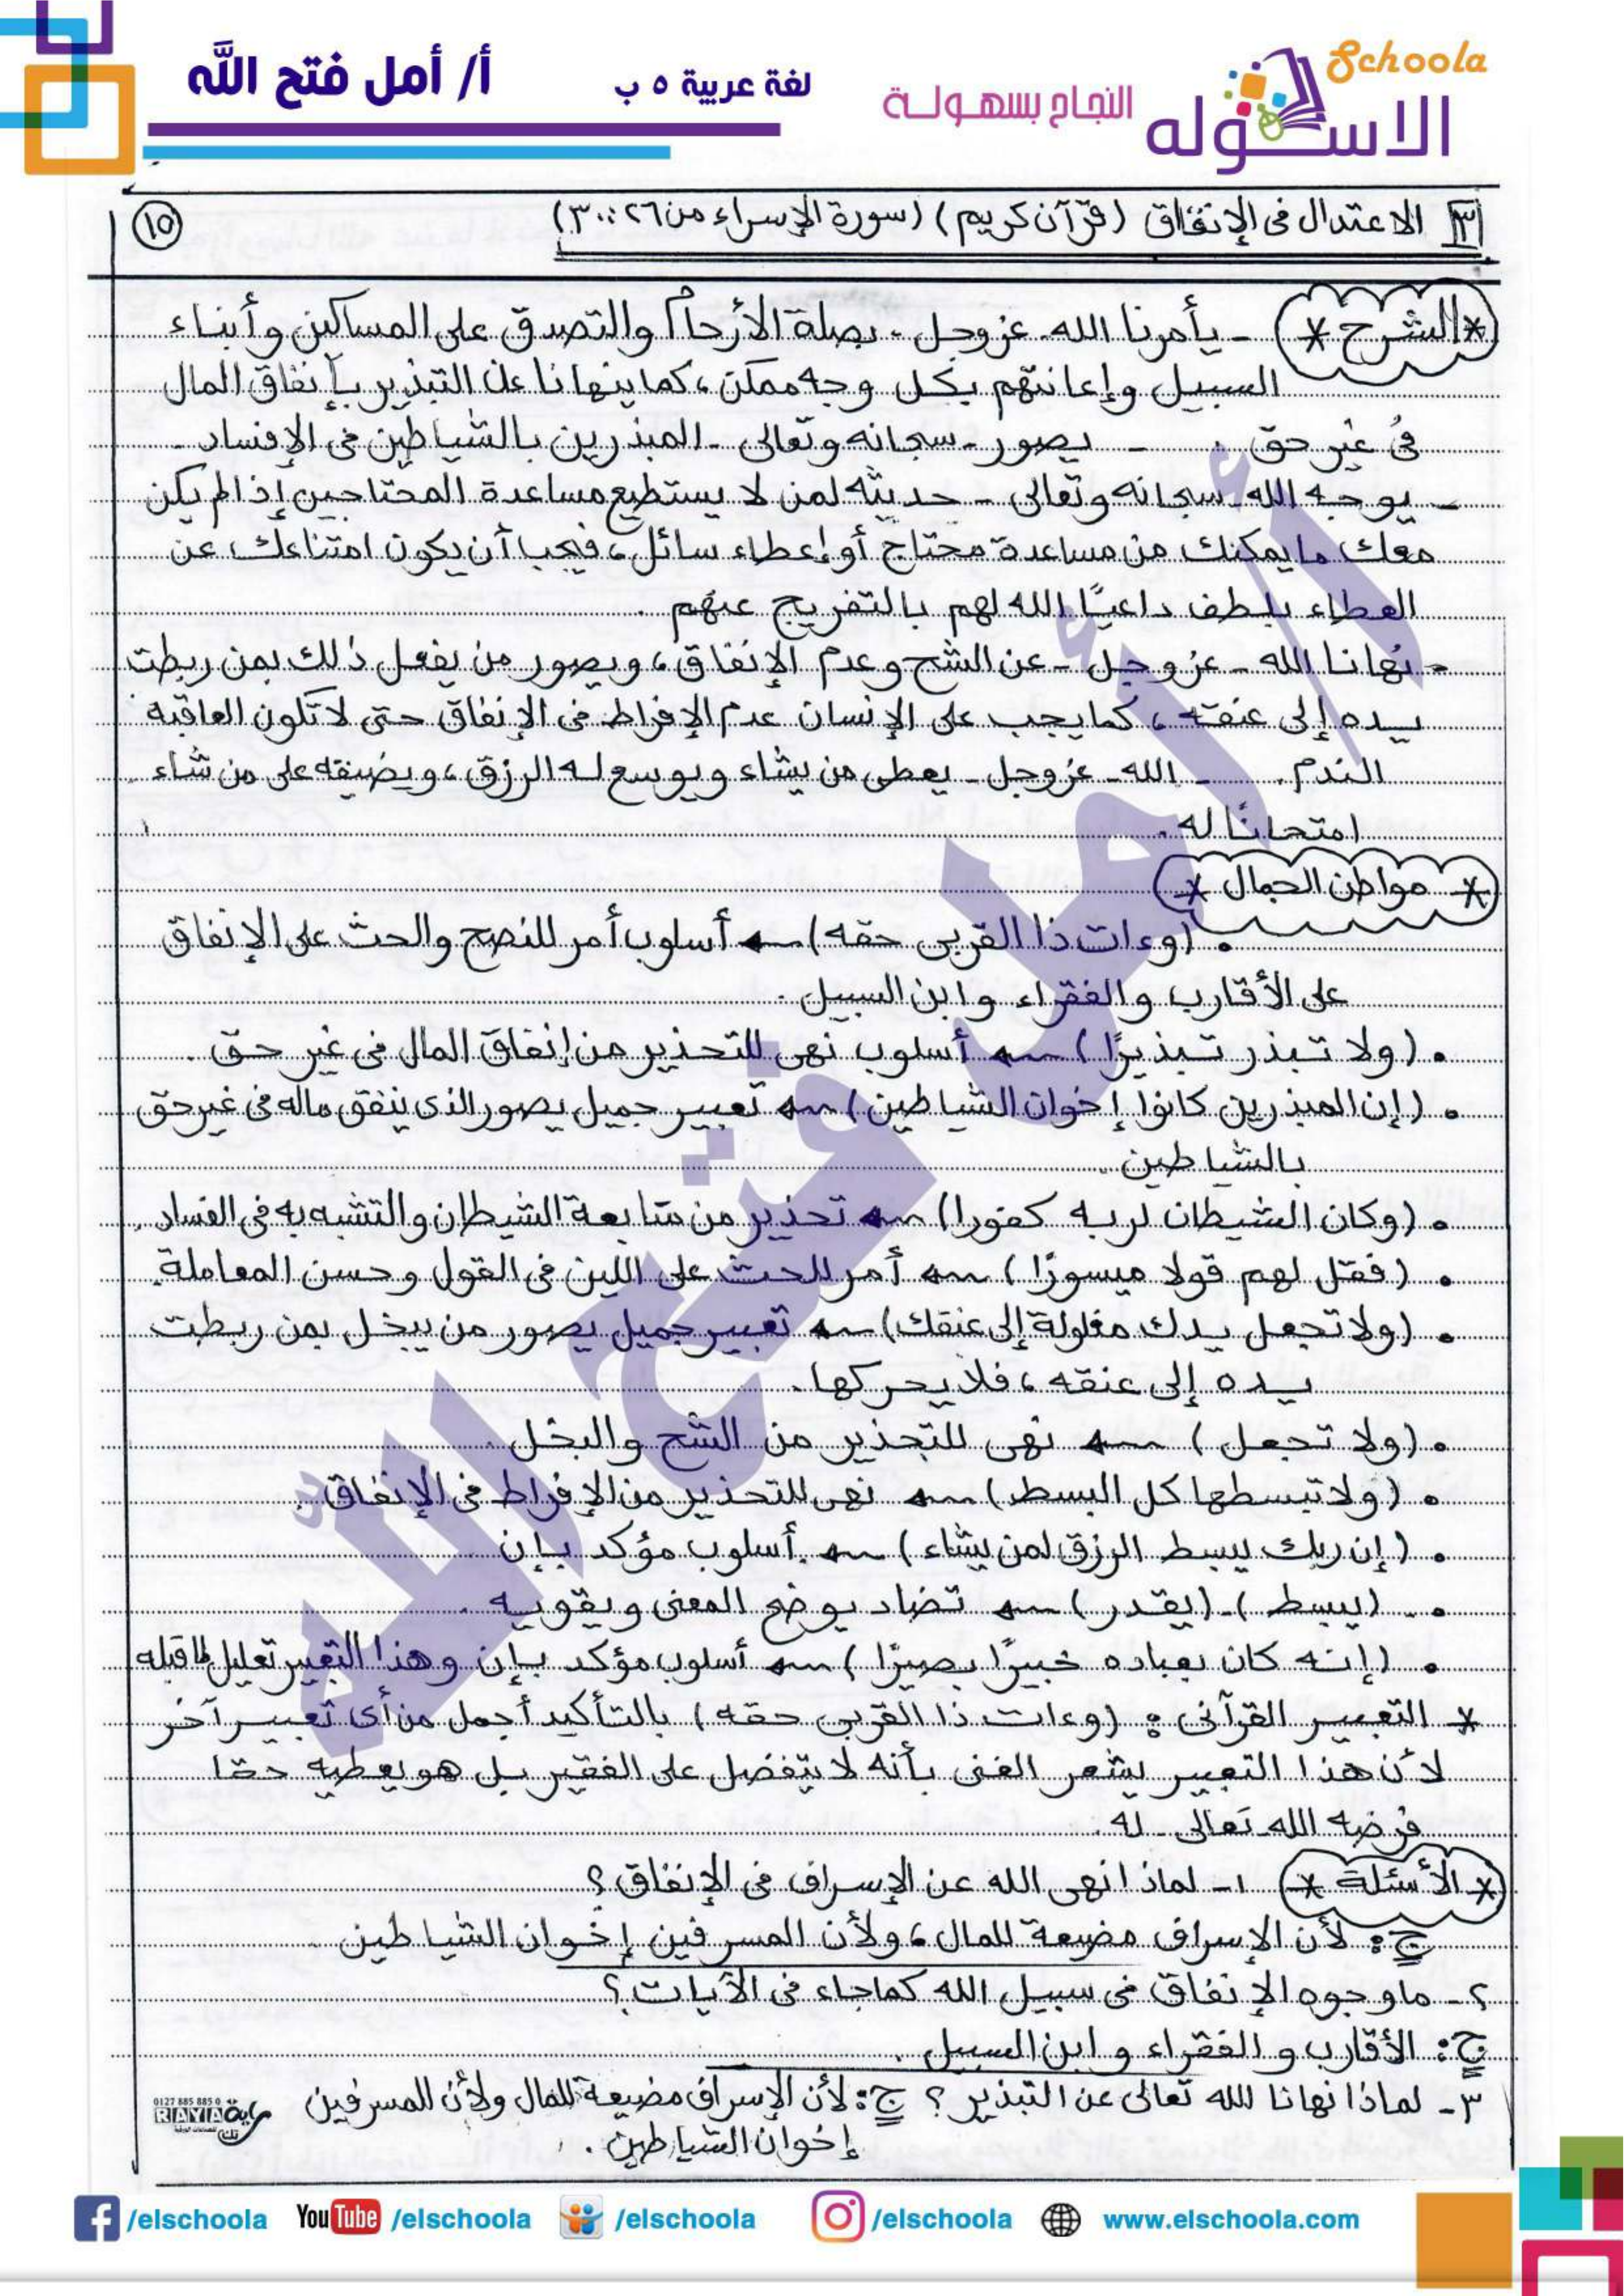 Schoola
الاسكوله
النجاح بسهولة
لغة عربية ٥ ب
أ/ أمل فتح الله
٣ الاعتدال فى الإنفاق (قرآن كريم) (سورة الإسراء من ٢٦ : ٣٠)
١٥
* الشرح * - يأمرنا الله - عز وجل - بصلة الأرحام والتصدق على المساكين وأبناء
السبيل وإعانتهم بكل وجه ممكن، كما ينهانا عن التبذير بإنفاق المال
فى غير حق. - يصور - سبحانه وتعالى - المبذرين بالشياطين فى الإفساد -
- يوجه الله سبحانه وتعالى - حديثه لمن لا يستطيع مساعدة المحتاجين إذا لم يكن
معك ما يمكنك من مساعدة محتاج أو إعطاء سائل، فيجب أن يكون امتناعك عن
العطاء بلطف داعيًا الله لهم بالتفريج عنهم .
- نهانا الله - عز وجل - عن الشح وعدم الإنفاق، ويصور من يفعل ذلك بمن ربطت
يده إلى عنقه، كما يجب على الإنسان عدم الإفراط فى الإنفاق حتى لا تكون العاقبة
الندم. - الله - عز وجل - يعطى من يشاء ويوسع له الرزق، ويضيقه على من شاء
امتحانًا له .
* مواطن الجمال *
. (وءات ذا القربى حقه) ← أسلوب أمر للنصح والحث على الإنفاق
على الأقارب والفقراء وابن السبيل .
. (ولا تبذر تبذيرًا) ← أسلوب نهى للتحذير من إنفاق المال فى غير حق .
. (إن المبذرين كانوا إخوان الشياطين) ← تعبير جميل يصور الذى ينفق ماله فى غير حق
بالشياطين .
. (وكان الشيطان لربه كفورا) ← تحذير من متابعة الشيطان والتشبه به فى الفساد .
. (فقل لهم قولا ميسورًا) ← أمر للحث على اللين فى القول وحسن المعاملة .
. (ولا تجعل يدك مغلولة إلى عنقك) ← تعبير جميل يصور من يبخل بمن ربطت
يده إلى عنقه، فلا يحركها .
. (ولا تجعل) ← نهى للتحذير من الشح والبخل .
. (ولا تبسطها كل البسط) ← نهى للتحذير من الإفراط فى الإنفاق .
. (إن ربك يبسط الرزق لمن يشاء) ← أسلوب مؤكد بإن
. (يبسط) - (يقدر) ← تضاد يوضح المعنى ويقويه .
. (إنه كان بعباده خبيرًا بصيرًا) ← أسلوب مؤكد بإن وهذا التعبير تعليل لما قبله
* التعبير القرآنى : (وءات ذا القربى حقه) بالتأكيد أجمل من أى تعبير آخر
لأن هذا التعبير يشعر الغنى بأنه لا يتفضل على الفقير بل هو يعطيه حقا
فرضه الله تعالى - له .
* الأسئلة * ١- لماذا نهى الله عن الإسراف فى الإنفاق ؟
ج: لأن الإسراف مضيعة للمال، ولأن المسرفين إخوان الشياطين
٢- ما وجوه الإنفاق فى سبيل الله كما جاء فى الآيات ؟
ج: الأقارب والفقراء وابن السبيل .
٣- لماذا نهانا الله تعالى عن التبذير ؟ ج: لأن الإسراف مضيعة للمال ولأن المسرفين
إخوان الشياطين .
0127 885 885 0
RAYA راية
أ/ أمل فتح الله
/elschoola
YouTube /elschoola
/elschoola
/elschoola
www.elschoola.com